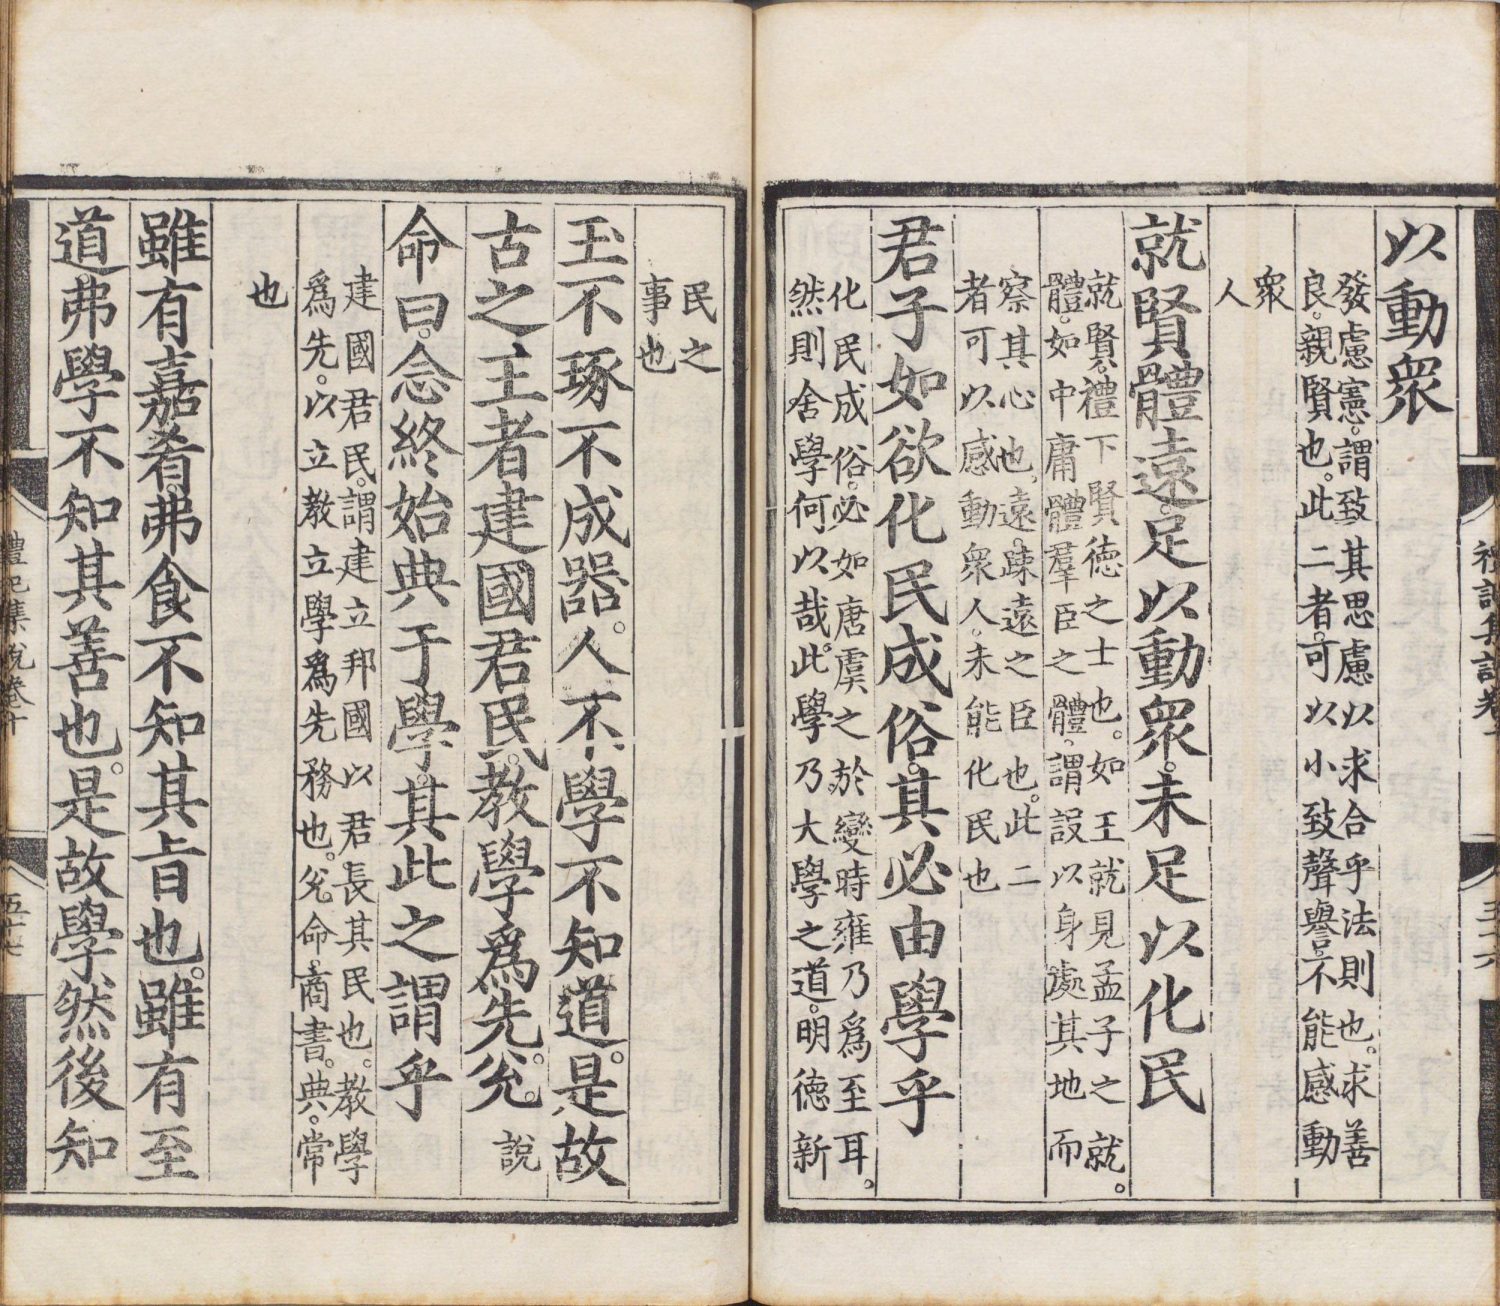 以動衆
發慮憲。謂致其思慮以求合乎法則也。求善
良。親賢也。此二者。可以小致聲譽。不能感動
衆
人
就賢體遠。足以動衆。未足以化民
就賢。禮下賢德之士也。如王就見孟子之就。
體。如中庸體羣臣之體。謂設以身處其地而
察其心也。遠。疎遠之臣也。此二
者可以感動衆人。未能化民也
君子如欲化民成俗。其必由學乎
化民成俗。必如唐虞之於變時雍乃爲至耳。
然則舍學何以哉。此學乃大學之道。明德新
民之
事也
玉不琢不成器。人不學不知道。是故
古之王者建國君民。教學爲先。兊。說
命曰。念終始典于學。其此之謂乎
建國君民。謂建立邦國以君長其民也。教學
爲先。以立教立學爲先務也。兊命。商書。典。常
也
雖有嘉肴。弗食不知其旨也。雖有至
道弗學不知其善也。是故學然後知
禮記集說卷十
五十七